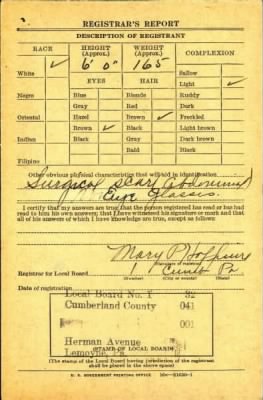 REGISTRAR'S REPORT
DESCRIPTION OF REGISTRANT
RACE ✓ HEIGHT (Approx.) 6' 0" WEIGHT (Approx.) 165 COMPLEXION
White ✓ Sallow
EYES HAIR Light ✓
Negro Blue Blonde Ruddy
Gray Red Dark
Oriental Hazel Brown ✓ Freckled
Brown ✓ Black Light brown
Indian Black Gray Dark brown
Bald Black
Filipino
Other obvious physical characteristics that will aid in identification
Surgical Scar, abdominal
Eye Glasses.
I certify that my answers are true; that the person registered has read or has had
read to him his own answers; that I have witnessed his signature or mark and that
all of his answers of which I have knowledge are true, except as follows:
Mary P.
(Signature of registrar)
Registrar for Local Board 1 Cumb Pa
(Number) (City or county) (State)
Date of registration
Local Board No. 1 32
Cumberland County 041
001
Herman Avenue
Lemoyne, Pa.
(STAMP OF LOCAL BOARD)
(The stamp of the Local Board having jurisdiction of the registrant
shall be placed in the above space)
U. S. GOVERNMENT PRINTING OFFICE 16—21630-1